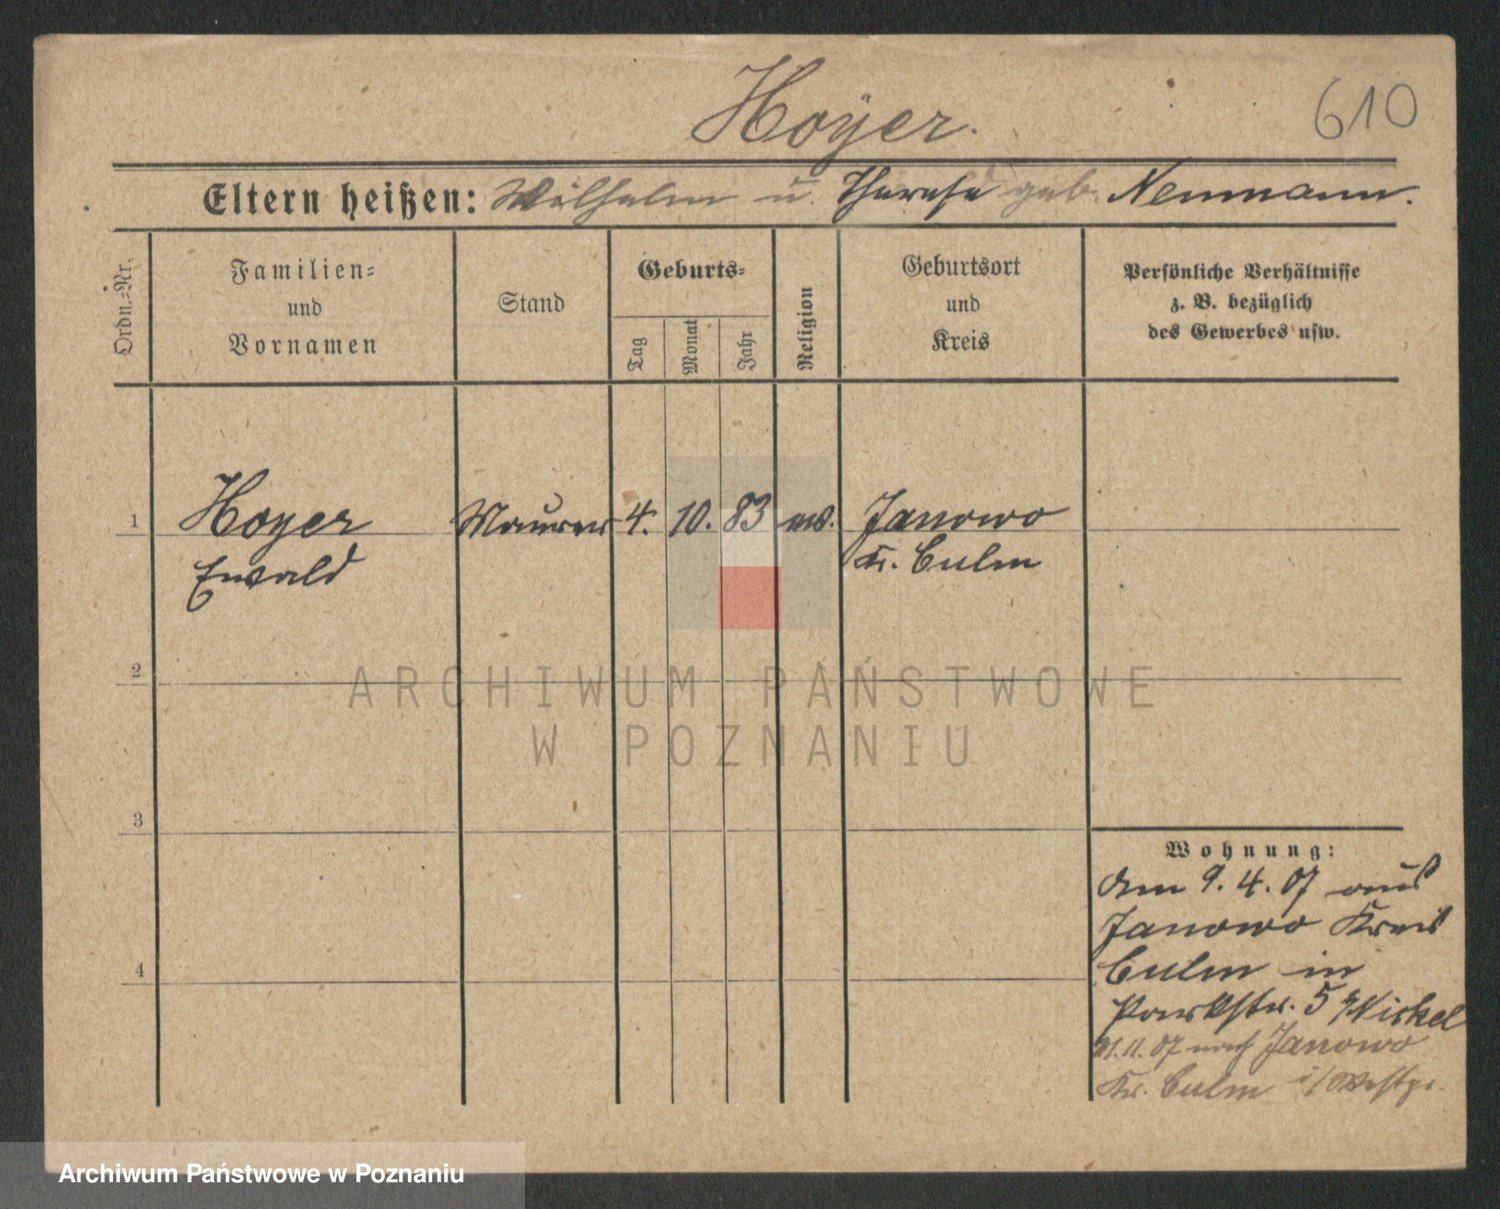 Hoÿer.
610
Eltern heißen: Wilhelm u. Therese geb. Neumann.
Ordn.-Nr.
Familien-
und
Vornamen
Stand
Geburts-
Tag
Monat
Jahr
Religion
Geburtsort
und
Kreis
Persönliche Verhältnisse
z. B. bezüglich
des Gewerbes usw.
1 Hoyer Maurer 4. 10. 83 ev. Janowo
Ewald Kr. Culm
2
ARCHIWUM PAŃSTWOWE
W POZNANIU
3
Wohnung:
den 9. 4. 07 aus
Janowo Kreis
4
Culm in
Parkstr. 5 b/Nickel
11. 07 nach Janowo
Kr. Culm i/Westpr.
Archiwum Państwowe w Poznaniu